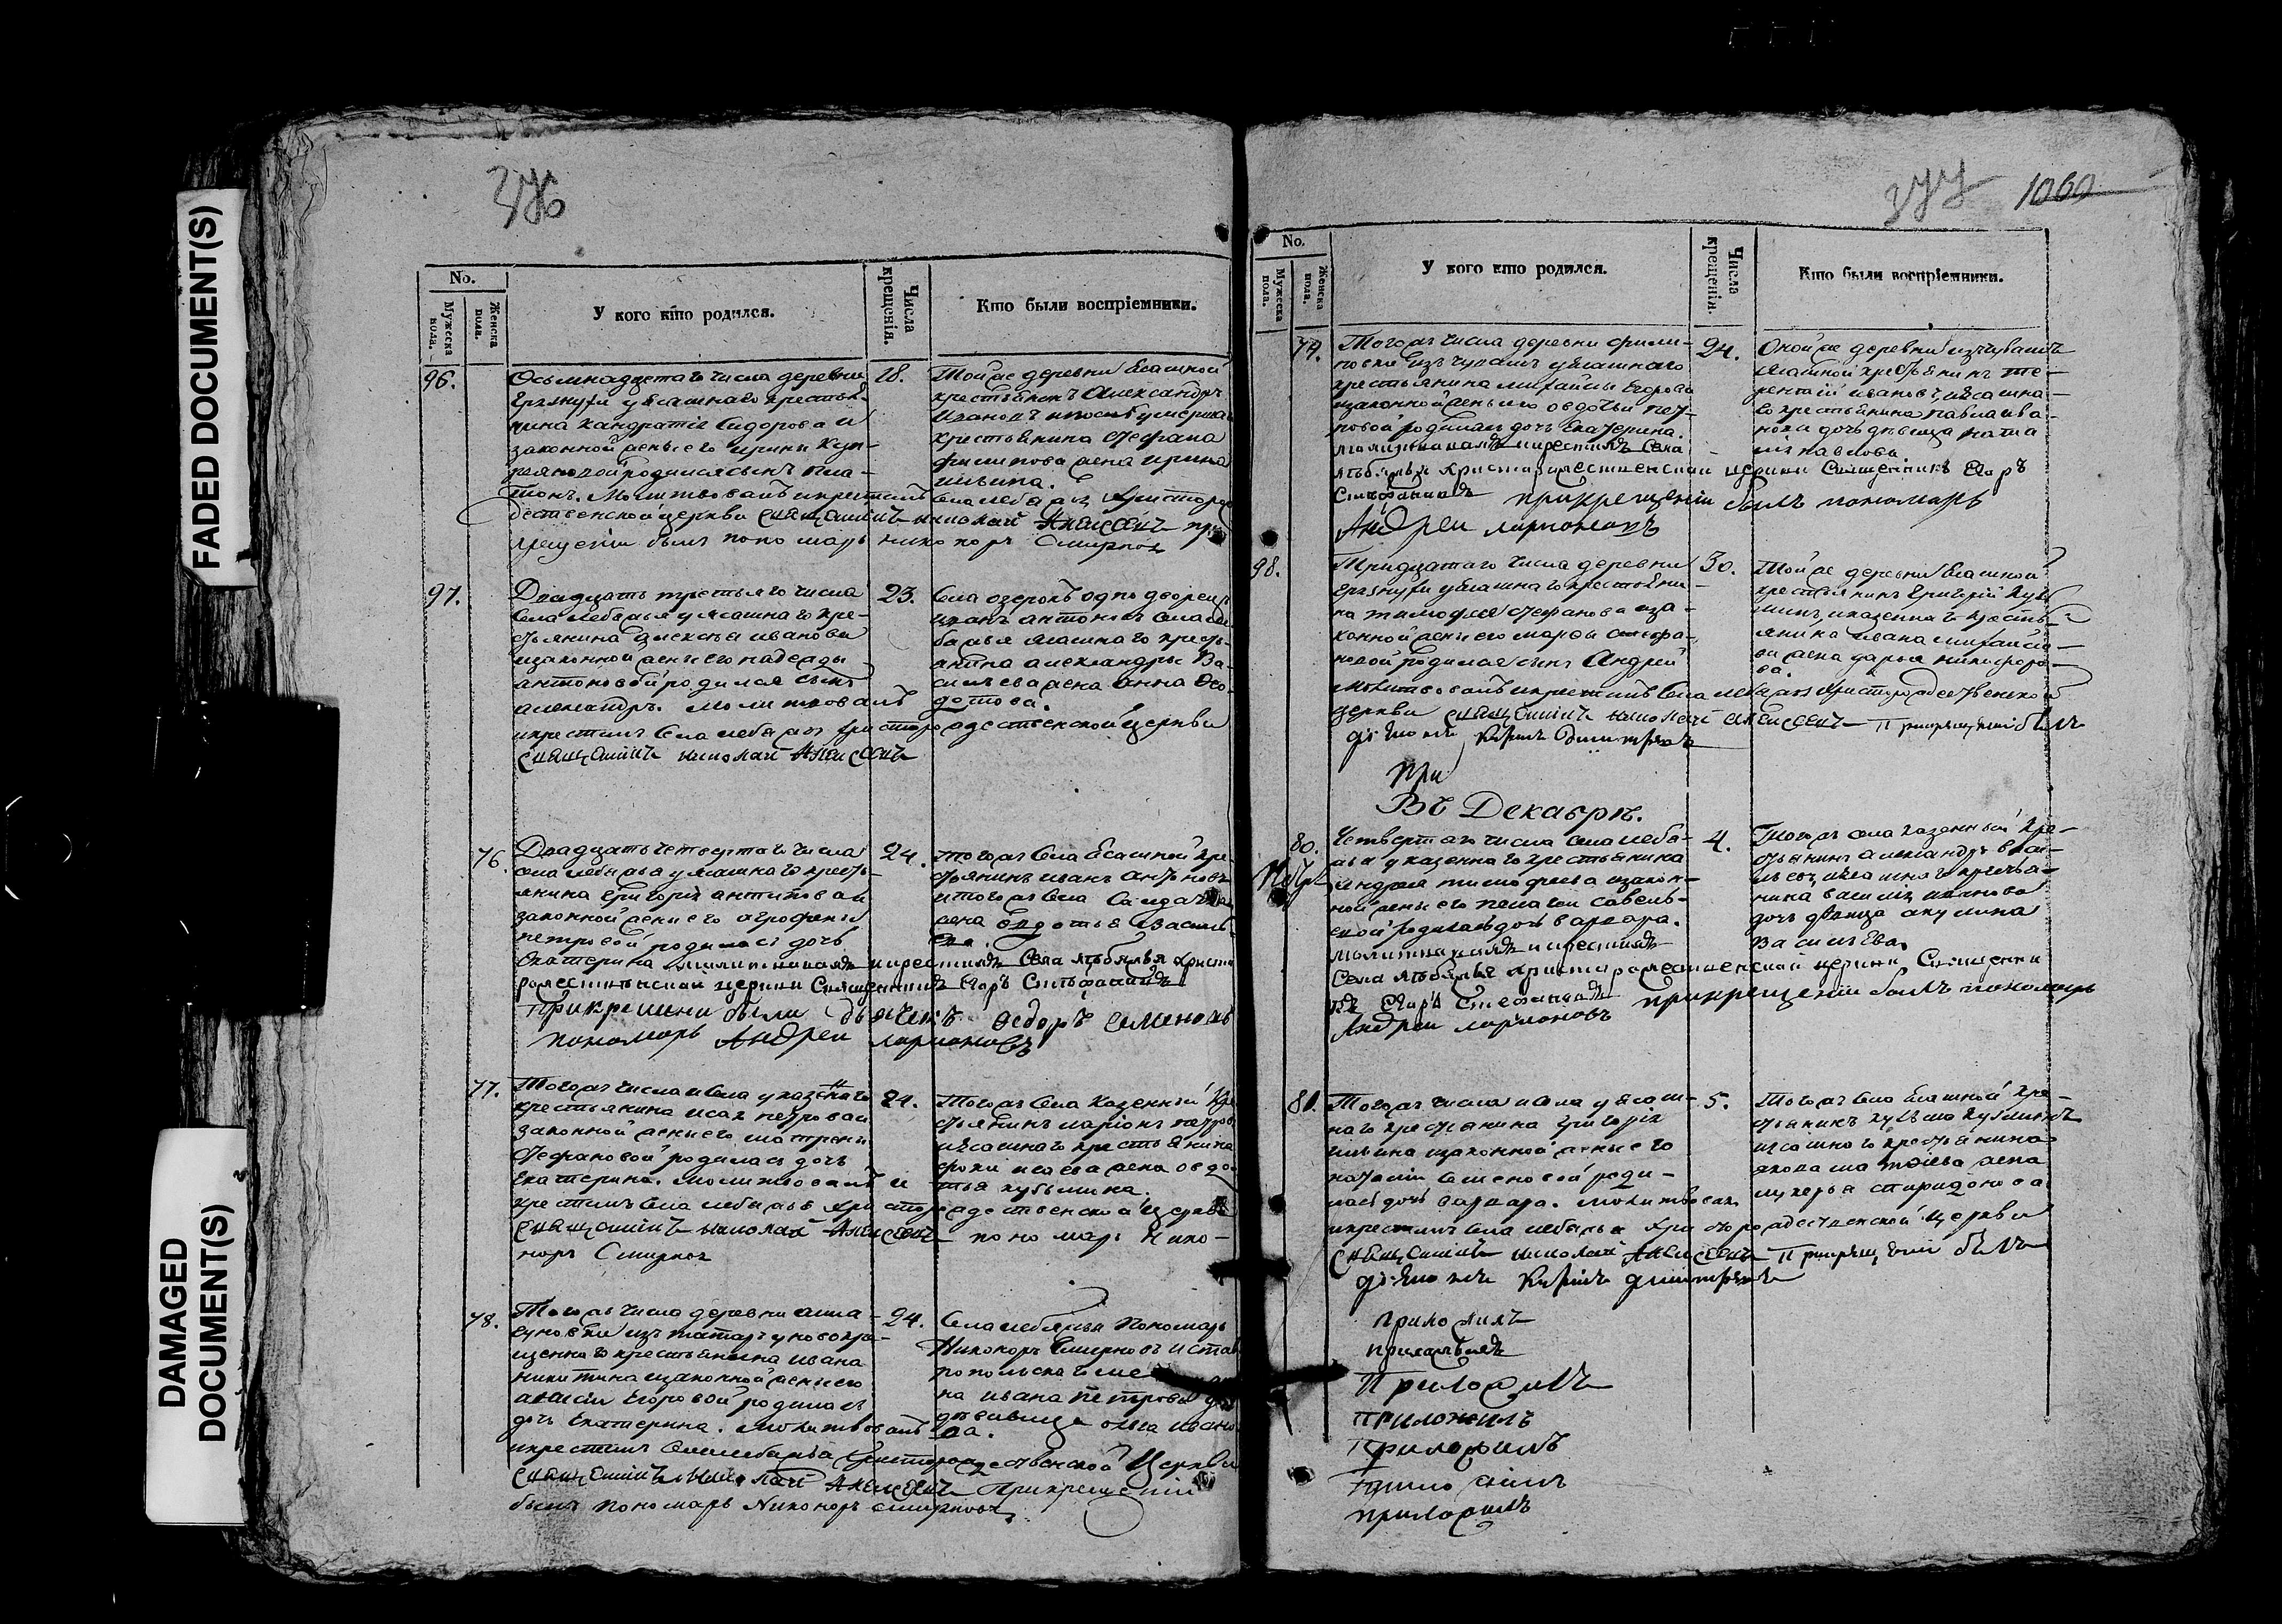 FADED DOCUMENT(S)
DAMAGED
DOCUMENT(S)
376
No.
Мужеска пола.
Женска пола.
У кого кто родился.
Числа крещенія.
Кто были воспріемники.
96.
Осьмнадцетаго числа деревни
уясашнаго крестья-
нина Кандратія Сидорова и
законной жены его Ирины Куп-
реяновой родился сынъ Пла-
тонъ. Молитвовалъ и крестилъ села Лебяжья Христорож
дественской церкви священникъ Николай Алексеевъ при
крещеніи былъ пономарь Никоноръ Смирновъ
18.
Тойже деревни ясашной
крестьянинъ Александръ
Ивановъ
крестьянина Стефана
Филипова жена Ирина
Ильина.
97.
Двадцать третьяго числа
села Лебяжья уясашнаго кре-
стьянина Алексея Иванова
изаконной жены его Надежды
Антоновой родился сынъ
Александръ. Молитвовалъ
икрестилъ села Лебяжья Христорождественской церкви
священникъ Николай Алексеевъ
23.
Села Озерокъ однодворецъ
Иванъ Антоновъ села Ле-
бяжья ясашнаго кресть-
янина Александры Ва-
сильева жена Анна Фео-
дотова.
76.
Двадцать четвертаго числа
села Лебяжья уясашнаго кресть-
янина Григорія Антипова и
законной жены его Агрофены
Петровой родилась дочь
Екатерина молитвовалъ икрестилъ села Лебяжья Христо
рождественской церкви священникъ Егоръ Стефановъ
при крещении были дьячекъ Федоръ Семеновъ
пономарь Андреи Ларионовъ
24.
Тогожъ села ясашной кре-
стьянинъ Иванъ Антоновъ
итогожъ села
жена Евдотья Василь-
ева.
77.
Тогожъ числа исела указеннаго
крестьянина Исая Петрова и
законной жены его Матрены
Стефановой родилась дочь
Екатерина. Молитвовалъ и
крестилъ села Лебяжья Христорождественской церкви
священникъ Николай Алексеевъ пономарь Нико-
норъ Смирновъ
24.
Тогожъ села казенный кре
стьянинъ Ларионъ Петровъ
иясашнаго крестьянина
Фрола Исаева жена Овдо-
тья Кузьмина.
78.
Тогожъ числа деревни
изъ татаръ уновокре-
щеннаго крестьянина Ивана
Никитина изаконной жены его
Егоровой родилась
дочь Екатерина. Молитвовалъ
икрестилъ села Лебяжья Христорождественской церкви
священникъ Николай Алексеевъ при крещении
былъ пономарь Никоноръ Смирновъ
24.
Села Лебяжья пономарь
Никоноръ Смирновъ и Став
попольскаго
на Ивана Петрова
девица Ольга Ивано-
ва.
377 1060
No.
Мужеска пола.
Женска пола.
У кого кто родился.
Числа крещенія.
Кто были воспріемники.
79.
Тогожъ числа деревни Фили-
повки изъ чувашъ уясашнаго
крестьянина Михайлы Егорова
изаконной жены его Овдотьи Пет-
ровой родилась дочь Екатерина.
молитвовалъ икрестилъ села
Лебяжья Христорождественской церкви священникъ Егоръ
Стефановъ прикрещеніи былъ пономарь
Андреи Ларионовъ
24.
Оной же деревни изъ чувашъ
ясашной крестьянинъ Те-
рентий Ивановъ, иясашна-
го крестьянина Павла Ива-
нова дочь девица Ната
лія Павлова.
98.
Тридцатаго числа деревни
уясашнаго крестьяни-
на Тимофея Стефанова иза-
конной жены его Марфы Стефа-
новой родился сынъ Андрей
Молитвовалъ икрестилъ села Лебяжья Христорождественской
церкви священникъ Николай Алексеевъ При крещеній былъ
дьяконъ Кирилъ Димитревъ
30.
Тойже деревни ясашной
крестьянинъ Григорий Кузь
минъ, иказеннаго кресть-
янина Ивана Михайло-
ва жена Дарья Никифоро-
ва.
При
Въ Декабрѣ.
80.
Четвертаго числа села Лебя-
жья указеннаго крестьянина
Андрея Тимофеева изакон-
ной жены его Пелагеи Савель-
евой родилась дочь Варвара.
молитвовалъ икрестилъ
села Лебяжья Христорождественской церкви священни
къ Егоръ Стефановъ прикрещеніи былъ пономарь
Андреи Ларионовъ
4.
Тогожъ села казенный кре-
стьянинъ Александръ Васи-
льевъ, иясашнаго крестья-
нина Василія Иванова
дочь девица Акулина
Васильева.
81.
Тогожъ числа исела уясаш-
наго крестьянина Григорія
Ильина изаконной жены его
Наталіи Семеновой роди-
лась дочь Варвара. Молитвовалъ
икрестилъ села Лебяжья Христорождественской церкви
священникъ Николай Алексеевъ При крещеній былъ
дьяконъ Кирилъ Димитревъ
5.
Тогожъ села ясашной кре-
стьянинъ Кузьма Кузьминъ
иясашнаго крестьянина
Якова Матвеева жена
Лукерья Спиридонова
приложилъ
приложилъ
Приложилъ
приложилъ
приложилъ
приложилъ
приложилъ